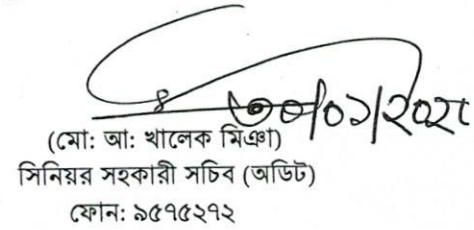 ৩০/০১/২০২৫
(মো: আ: খালেক মিঞা)
সিনিয়র সহকারী সচিব (অডিট)
ফোন: ৯৫৭৫২৭২